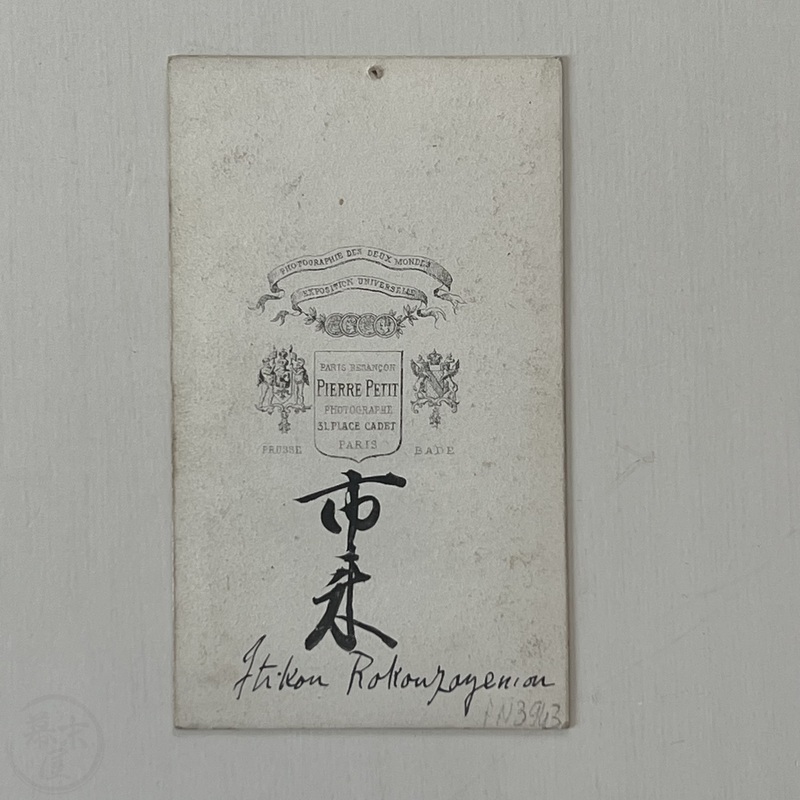 PHOTOGRAPHIE DES DEUX MONDES
EXPOSITION UNIVERSELLE
PARIS BESANÇON
PIERRE PETIT
PHOTOGRAPHE
31, PLACE CADET
PARIS
PRUSSE
BADE
市来
Itikou Rokouzayemon
PN3943